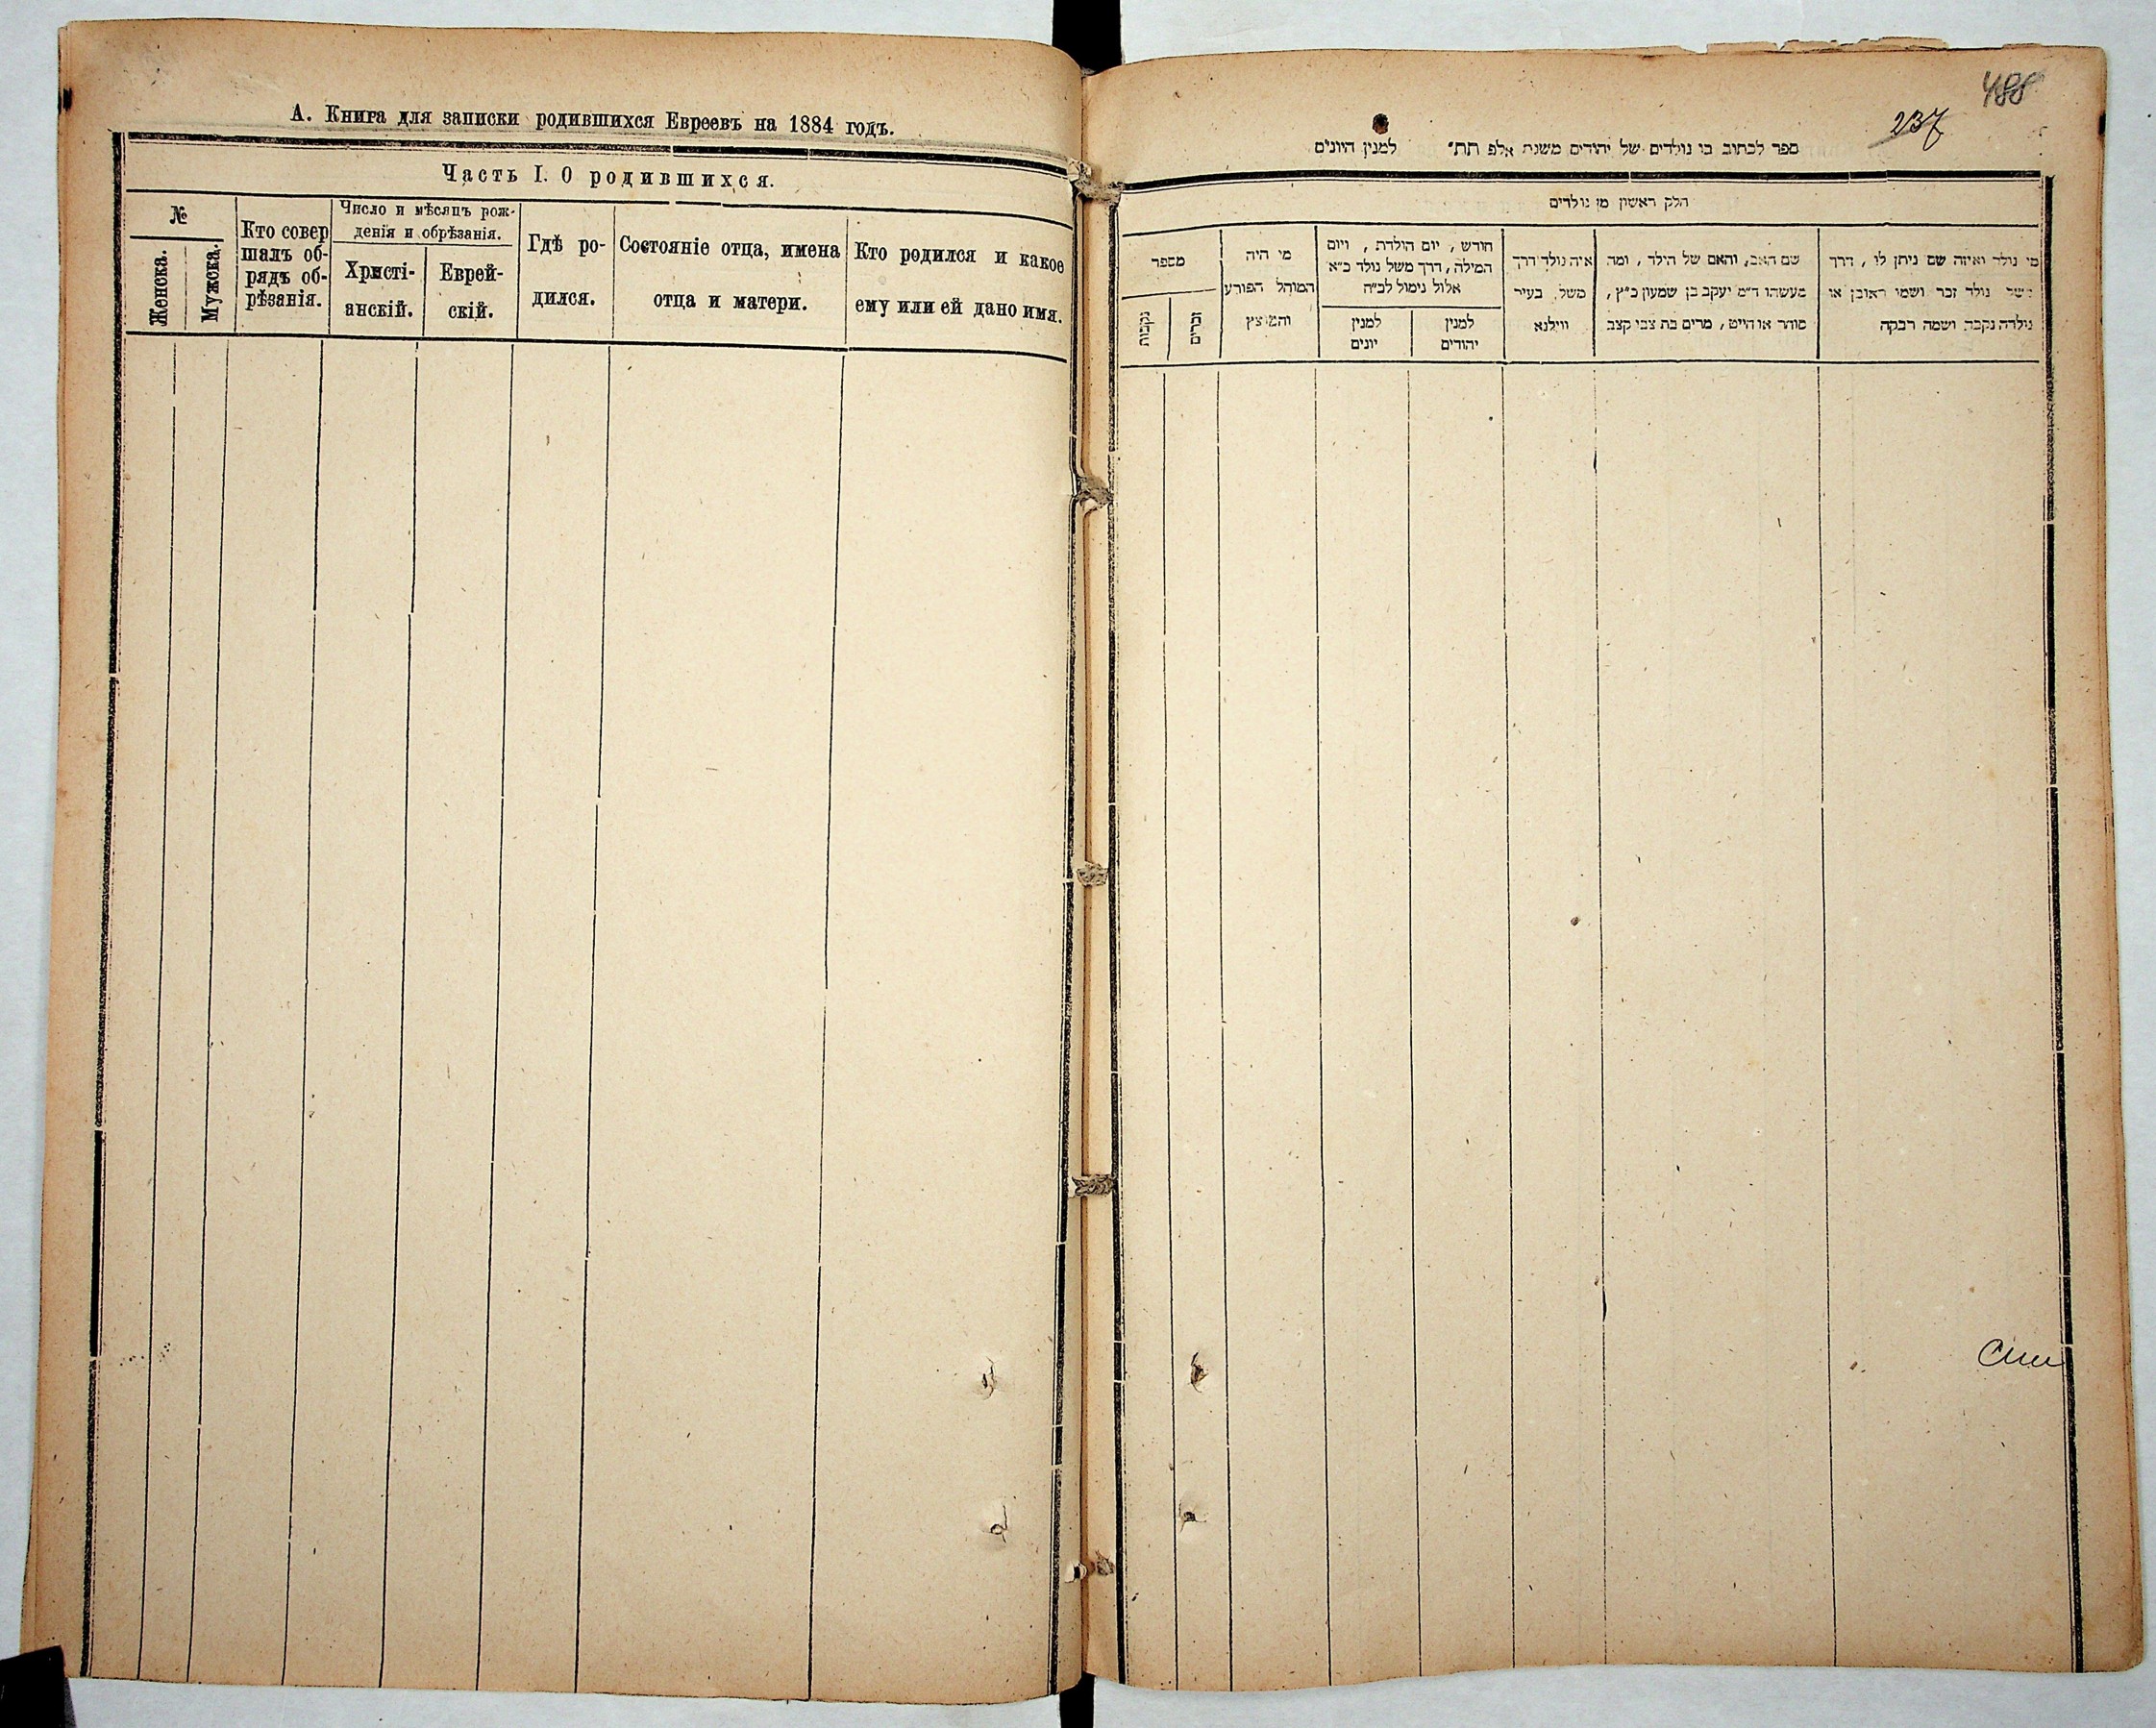 А. Книга для записки родившихся Евреевъ на 1884 годъ.
Часть I. О родившихся.
№
Женска.
Мужска.
Кто совер
шалъ об-
рядъ об-
рѣзанія.
Число и мѣсяцъ рож-
денія и обрѣзанія.
Христі-
анскій.
Еврей-
скій.
Гдѣ ро-
дился.
Состояніе отца, имена
отца и матери.
Кто родился и какое
ему или ей дано имя.
488
237
ספר לכתוב בו נולדים של יהודים משנת אלפ תת״ למנין היונים
חלק ראשון מן נולדים
מי נולד ואיזה שם ניתן לו , דרך
משל נולד זכר ושמו ראובן או
נולדה נקבה ושמה רבקה
שם האב, והאם של הילד , ומה
מעשהו ד״מ יעקב בן שמעון כ״ץ ,
סוחר או חייט , מרים בת צבי קצב
איה נולד דרך
משל בעיר
ווילנא
חודש , יום הולדת , ויום
המילה , דרך משל נולד כ״א
אלול נימול לכ״ה
למנין
יהודים
למנין
יונים
מי היה
המוהל הפורע
והמוצץ
מספר
זכרים
נקבות